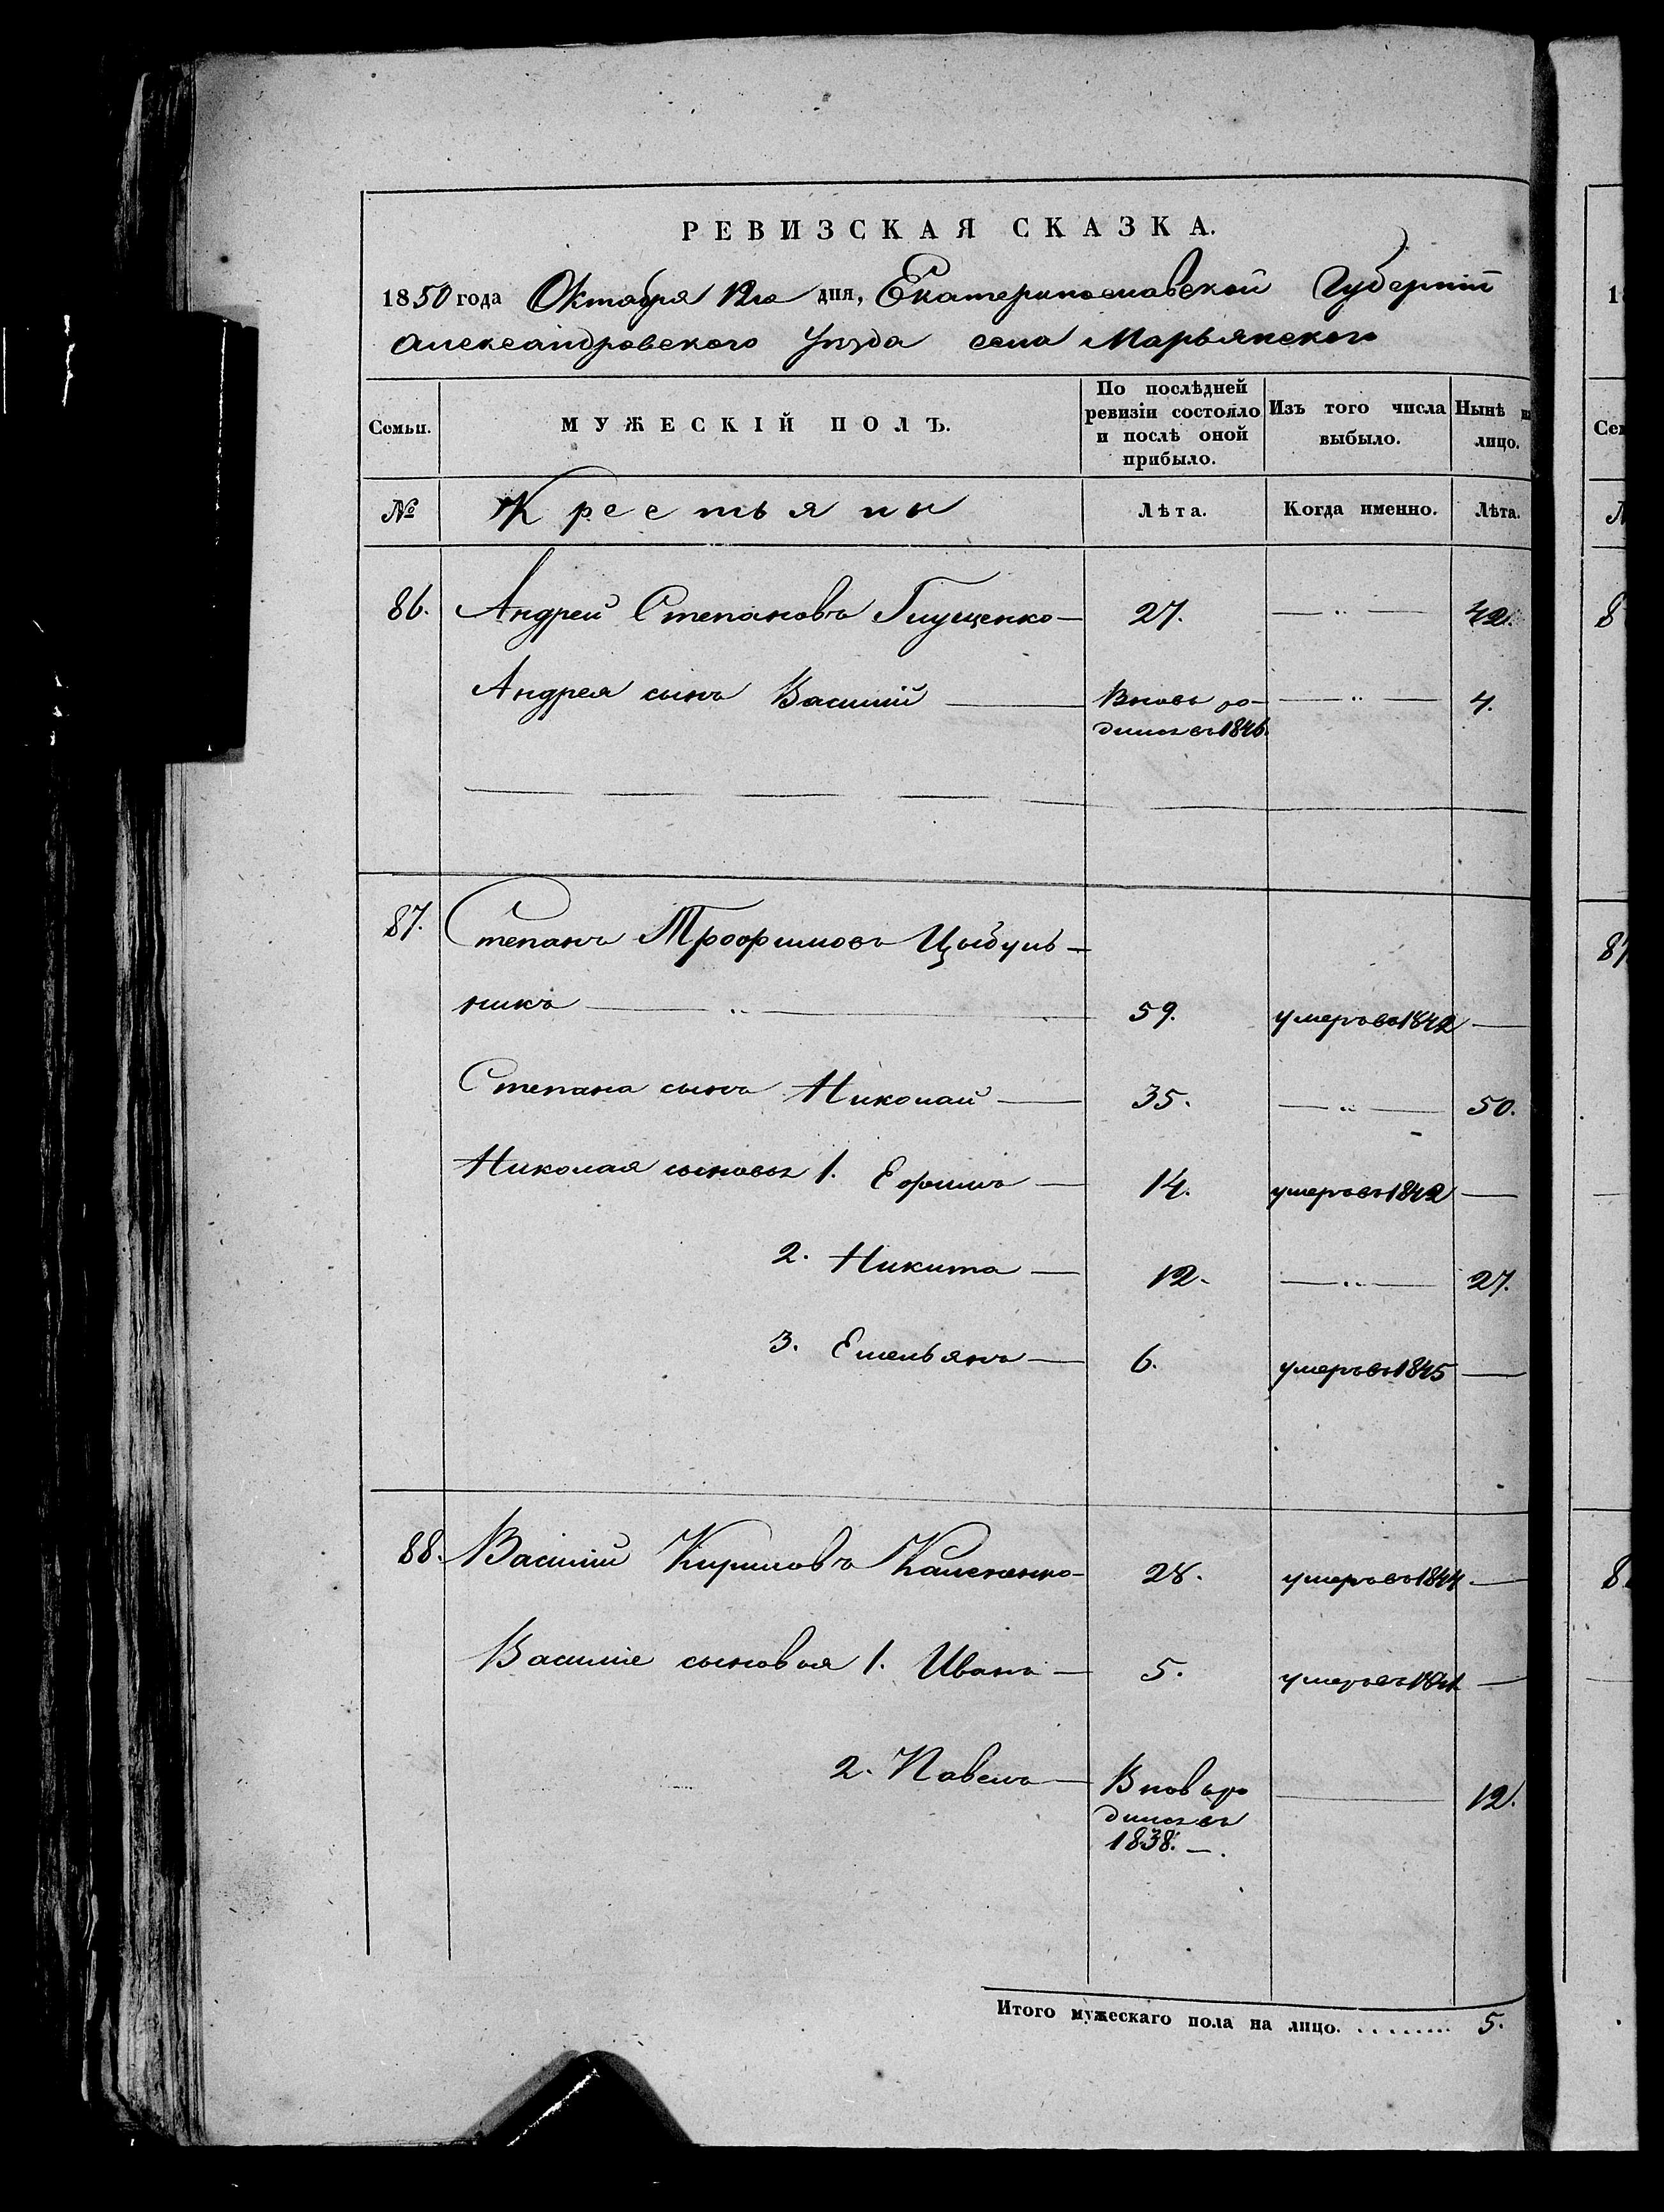 РЕВИЗСКАЯ СКАЗКА.
1850 года Октября 12го дня, Екатеринославской Губерніи
Александровского Уѣзда села Марьянского
Семьи. МУЖЕСКІЙ ПОЛЪ. По послѣдней ревизіи состояло и послѣ оной прибыло. Изъ того числа выбыло. Нынѣ на лицо.
№ Крестьяны Лѣта. Когда именно. Лѣта.
86. Андрей Степановъ Глущенко — 27. — „ — 42.
Андрея сынъ Василій — Вновь ро- — „ — 4.
дился въ 1846.
87. Степанъ Трофимовъ Цыбуль-
никъ — „ — 59. умеръ въ 1842 —
Степана сынъ Николай — 35. — „ — 50.
Николая сыновья 1. Ефимъ — 14. умеръ въ 1842 —
2. Никита — 12. — „ — 27.
3. Емельянъ — 6. умеръ въ 1845 —
88. Василій Кириловъ — 28. умеръ въ 1844 —
Василія сыновья 1. Иванъ — 5. умеръ въ 1841 —
2. Павелъ — Вновь ро — 12.
дился въ
1838. —.
Итого мужескаго пола на лицо. ........ 5.
18
Се
№
8
87
8